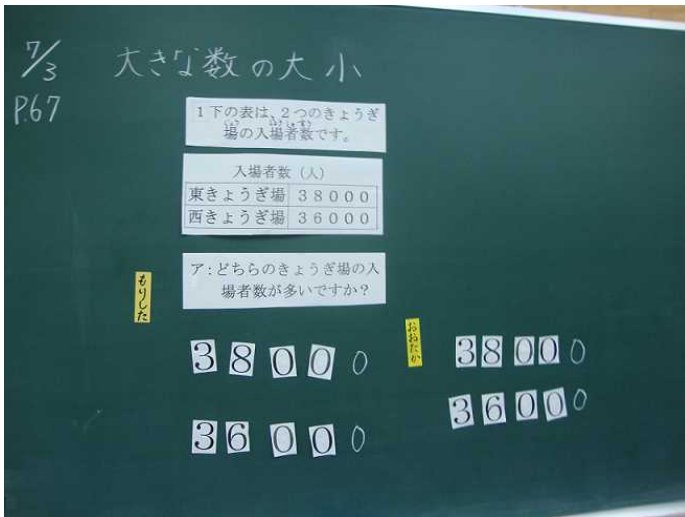 7/3 大きな数の大小
P.67
1下の表は、2つのきょうぎ
場の入場者数です。
入場者数(人)
東きょうぎ場 38000
西きょうぎ場 36000
ア:どちらのきょうぎ場の入
場者数が多いですか?
もりした
38000
36000
おおたか
38000
36000